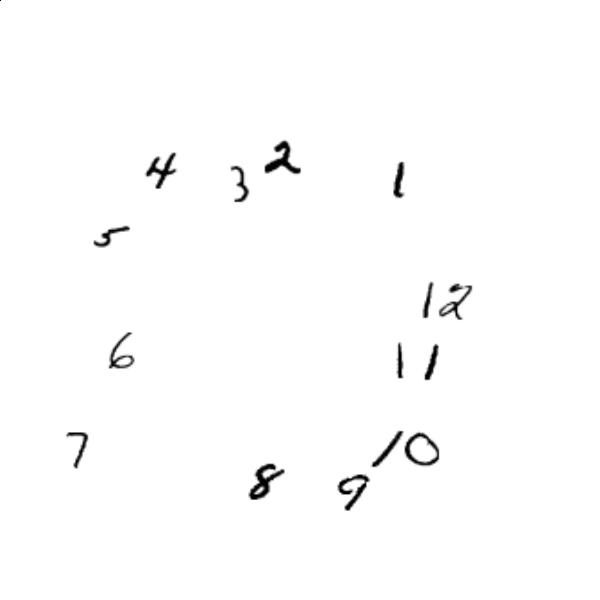 4 3 2 1
5
12
6 11
7 10
8 9